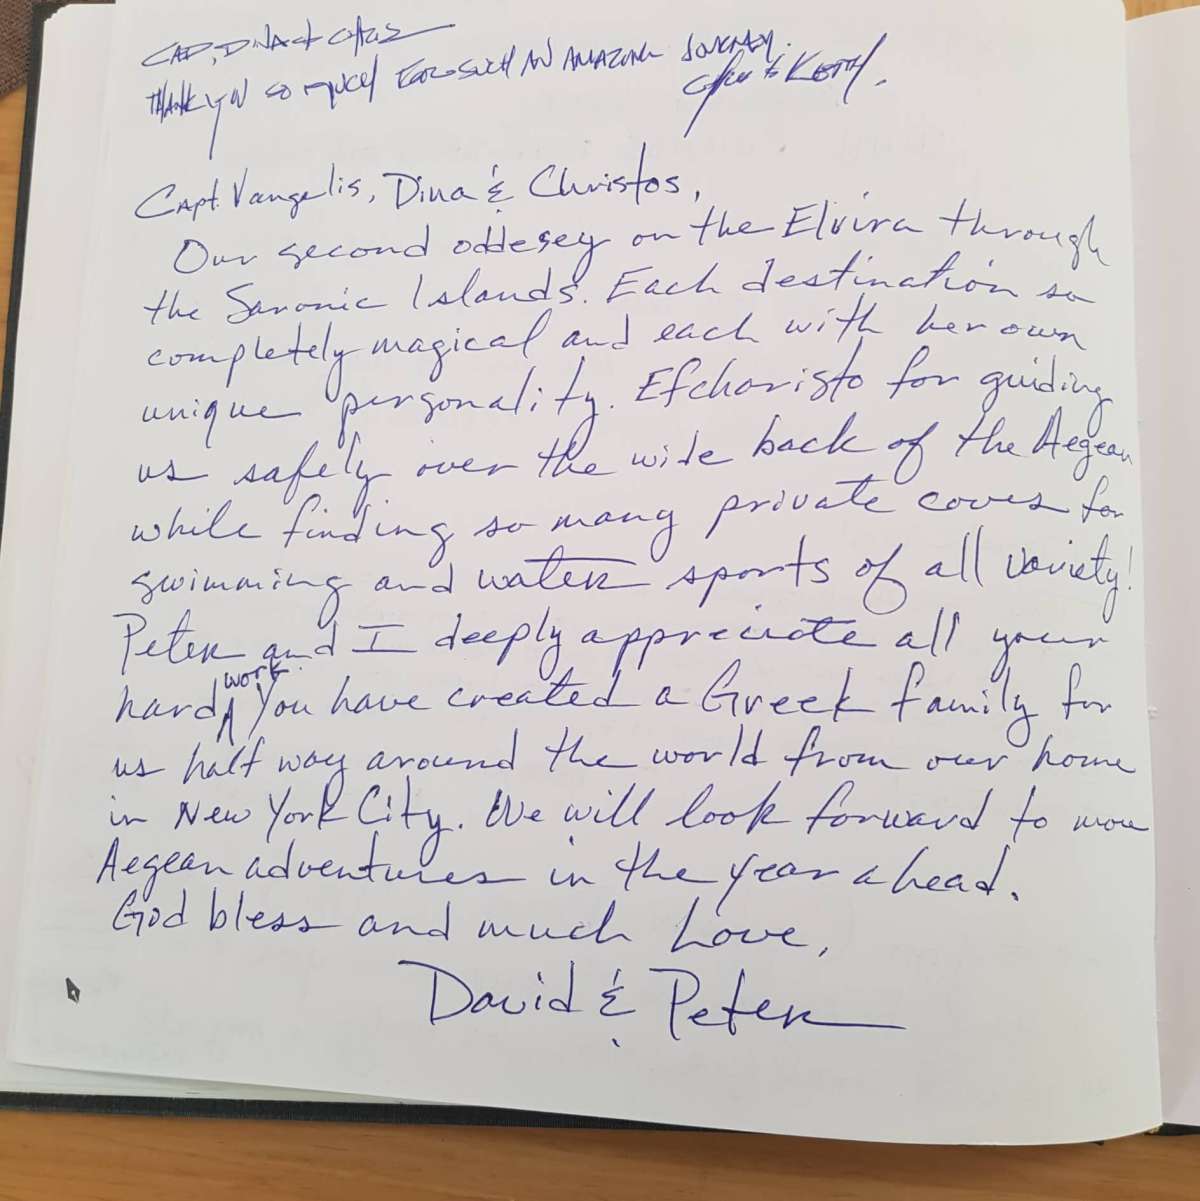 CAP, DINA & CHRIS
THANK YOU SO MUCH FOR SUCH AN AMAZING JOURNEY.
& KEITH.
Capt. Vangelis, Dina & Christos,
Our second oddesey on the Elvira through
the Saronic Islands. Each destination so
completely magical and each with her own
unique personality. Efcharisto for guiding
us safely over the wide back of the Aegean
while finding so many private coves for
swimming and water sports of all variety!
Peter and I deeply appreciate all your
hard work. You have created a Greek family for
us half way around the world from our home
in New York City. We will look forward to more
Aegean adventures in the year ahead.
God bless and much Love,
David & Peter